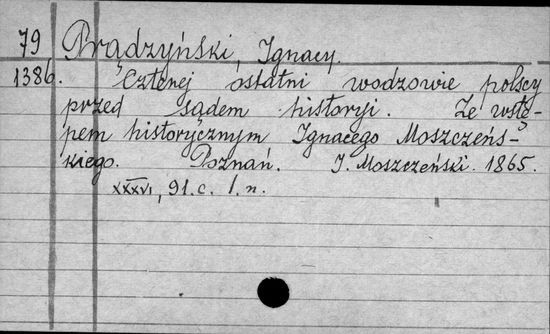 79 Prądzyński, Ignacy.
1386. Czterej ostatni wodzowie polscy
przed sądem historyi. Ze wstę-
pem historycznym Ignacego Moszczeńs-
kiego. Poznań. J. Moszczeński. 1865.
XXXVI, 91. c. l. n.